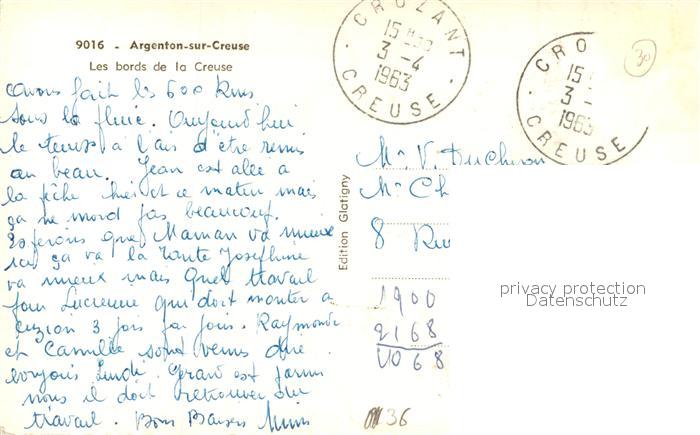 9016 - Argenton-sur-Creuse
Les bords de la Creuse
avons fait les 600 kms
sous la pluie. Aujourd'hui
le temps a l'air d'être remis
au beau. Jean est allé a
la pêche hier et ce matin mais
ça ne mord pas beaucoup.
Esperons que Maman va mieux
ici ça va la Tante Josephine
va mieux mais quel travail
pour Lucienne qui doit monter a
3 fois par jour. Raymonde
et Camille sont venus dire
bonjour Lundi. Gerard est
nous il doit retrouver du
travail. Bons Baisers Mimi
Edition Glatigny
CROZANT
15
3 - 4
1963
CREUSE
CRO
15
3 -
1963
CREUSE
30
Mr V. Ducheron
Mr Ch
8 Ru
1900
2168
4068
36
privacy protection
Datenschutz